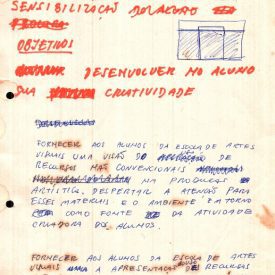 SENSIBILIZAÇÃO DO
OBJETIVOS
DESENVOLVER NO ALUNO
SUA CRIATIVIDADE
FORNECER AOS ALUNOS DA ESCOLA DE ARTES
VISUAIS UMA VISÃO DO
RECURSOS NÃO CONVENCIONAIS
NA PRODUÇÃO
ARTÍSTICA, DESPERTAR A ATENÇÃO PARA
ESSES MATERIAIS E O AMBIENTE EM TORNO
COMO FONTE DA ATIVIDADE
CRIADORA DOS ALUNOS.
FORNECER AOS ALUNOS DA ESCOLA DE ARTES
VISUAIS A APRESENTAÇÃO DE RECURSOS